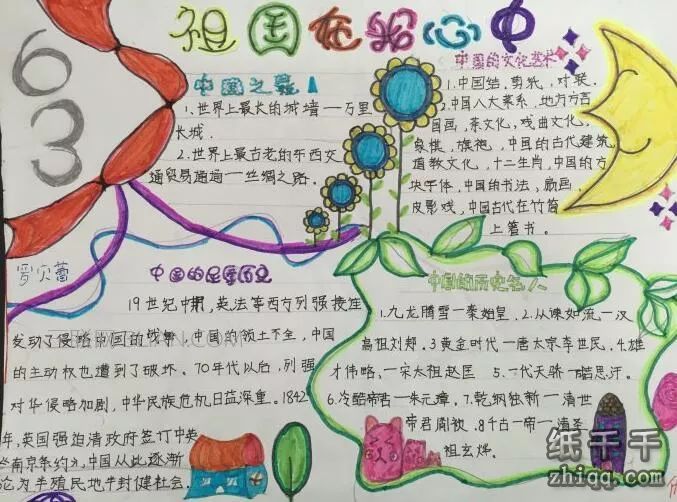 祖国在我心中
63
中国之最
1.世界上最长的城墙一万里
长城.
2.世界上最古老的东西交
通贸易通道一丝绸之路.
中国的文化艺术
1.中国结.剪纸,对联.
2.中国八大菜系,地方方言
国画,茶文化,戏曲文化,
象棋,旗袍,中国的古代建筑
道教文化,十二生肖,中国的方
块字体,中国的书法,
皮影戏,中国古代在竹简
上篆书.
罗贝蕾
中国的屈辱历史
19世纪中期,英法等西方列强接连
发动了侵略中国的战争,中国的领土不全,中国
的主动权也遭到了破坏.70年代以后,列强
对华侵略加剧,中华民族危机日益深重.1842
年,英国强迫清政府签订中英
南京条约》,中国从此逐渐
沦为半殖民地半封建社会.
中国的历史名人
1.九龙腾雪一秦始皇,2.从谏如流一汉
高祖刘邦.3黄金时代一唐太宗李世民,4.雄
才伟略.一宋太祖赵匡 5.一代天骄一
6.冷酷帝君一朱元璋.7,乾纲独断一清世
帝君胤禛.8千古一帝一清圣
祖玄烨.
纸千千
zhiqq.com